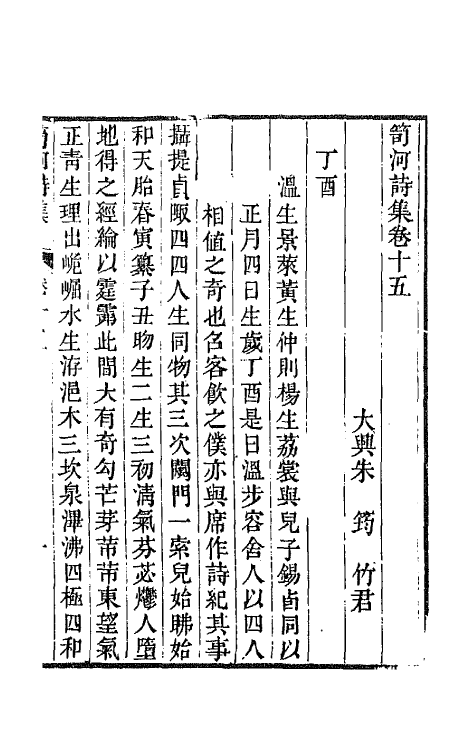 笥河詩集卷十五
大興朱筠竹君
丁酉
溫生景萊黃生仲則楊生荔裳與兒子錫卣同以
正月四日生歲丁酉是日溫步容舍人以四人
相值之奇也名客飲之僕亦與席作詩紀其事
攝提貞陬四四人生同物其三次闗門一索兒始朏始
和天胎春寅纂子丑昒生二生三初淸氣芬苾爩人墮
地得之經綸以霆霓此間大有奇勾芒芽芾芾東望氣
正靑生理出峗崛水生洊浥木三坎泉渾沸四極四和